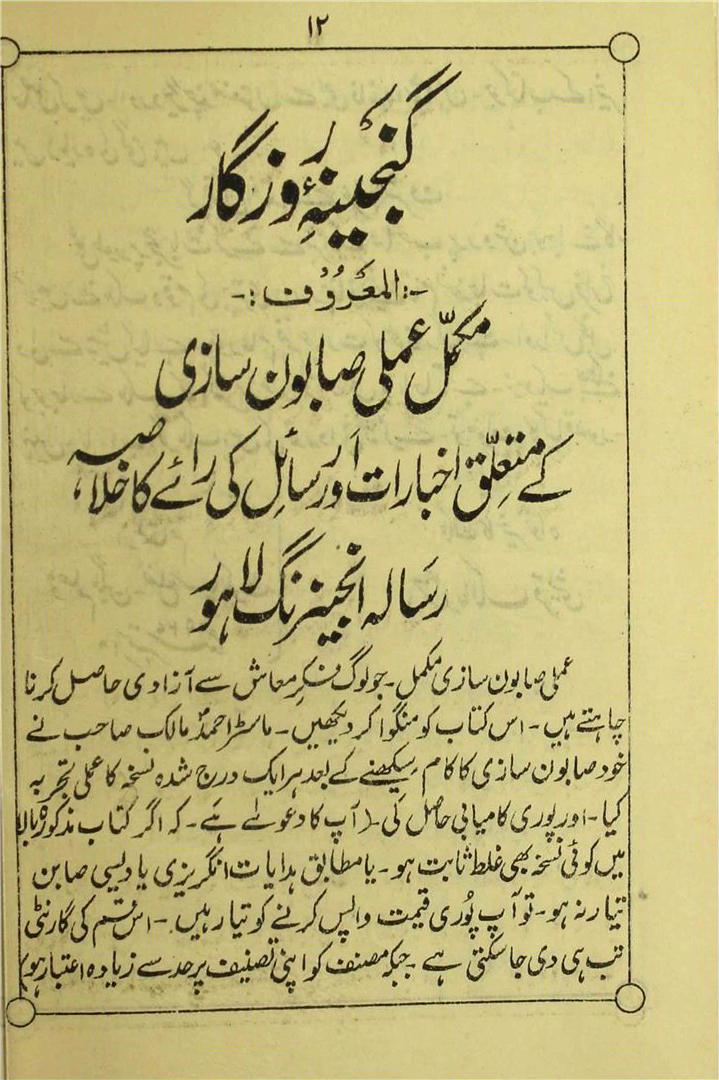 ۱۲
گنجینۂ روزگار
-:المعروف:-
مکمّل عملی صابون سازی
کے متعلّق اخبارات اور رسائل کی رائے کا خلاصہ،
رسالہ انجینرنگ لاہور
عملی صابون سازی مکمل ۔ جو لوگ فکرِ معاش سے آزادی حاصل کرنا
چاہتے ہیں ۔ اس کتاب کو منگوا کر دیکھیں ۔ ماسٹر احمدؐ مالک صاحب نے
خود صابون سازی کا کام سیکھنے کے بعد ہر ایک درج شدہ نسخہ کا عملی تجربہ
کیا ۔ اور پوری کامیابی حاصل کی ۔ (آپ کا دعوےٰ ہے ۔ کہ اگر کتاب مذکورہ بالا
میں کوئی نسخہ بھی غلط ثابت ہو ۔ یا مطابق ہدایات انگریزی یا دیسی صابن
تیار نہ ہو ۔ تو آپ پُوری قیمت واپس کرنے کو تیار ہیں ۔ اس قسم کی گارنٹی
تب ہی دی جا سکتی ہے ۔ جبکہ مصنف کو اپنی تصنیف پر حد سے زیادہ اعتبار ہو)